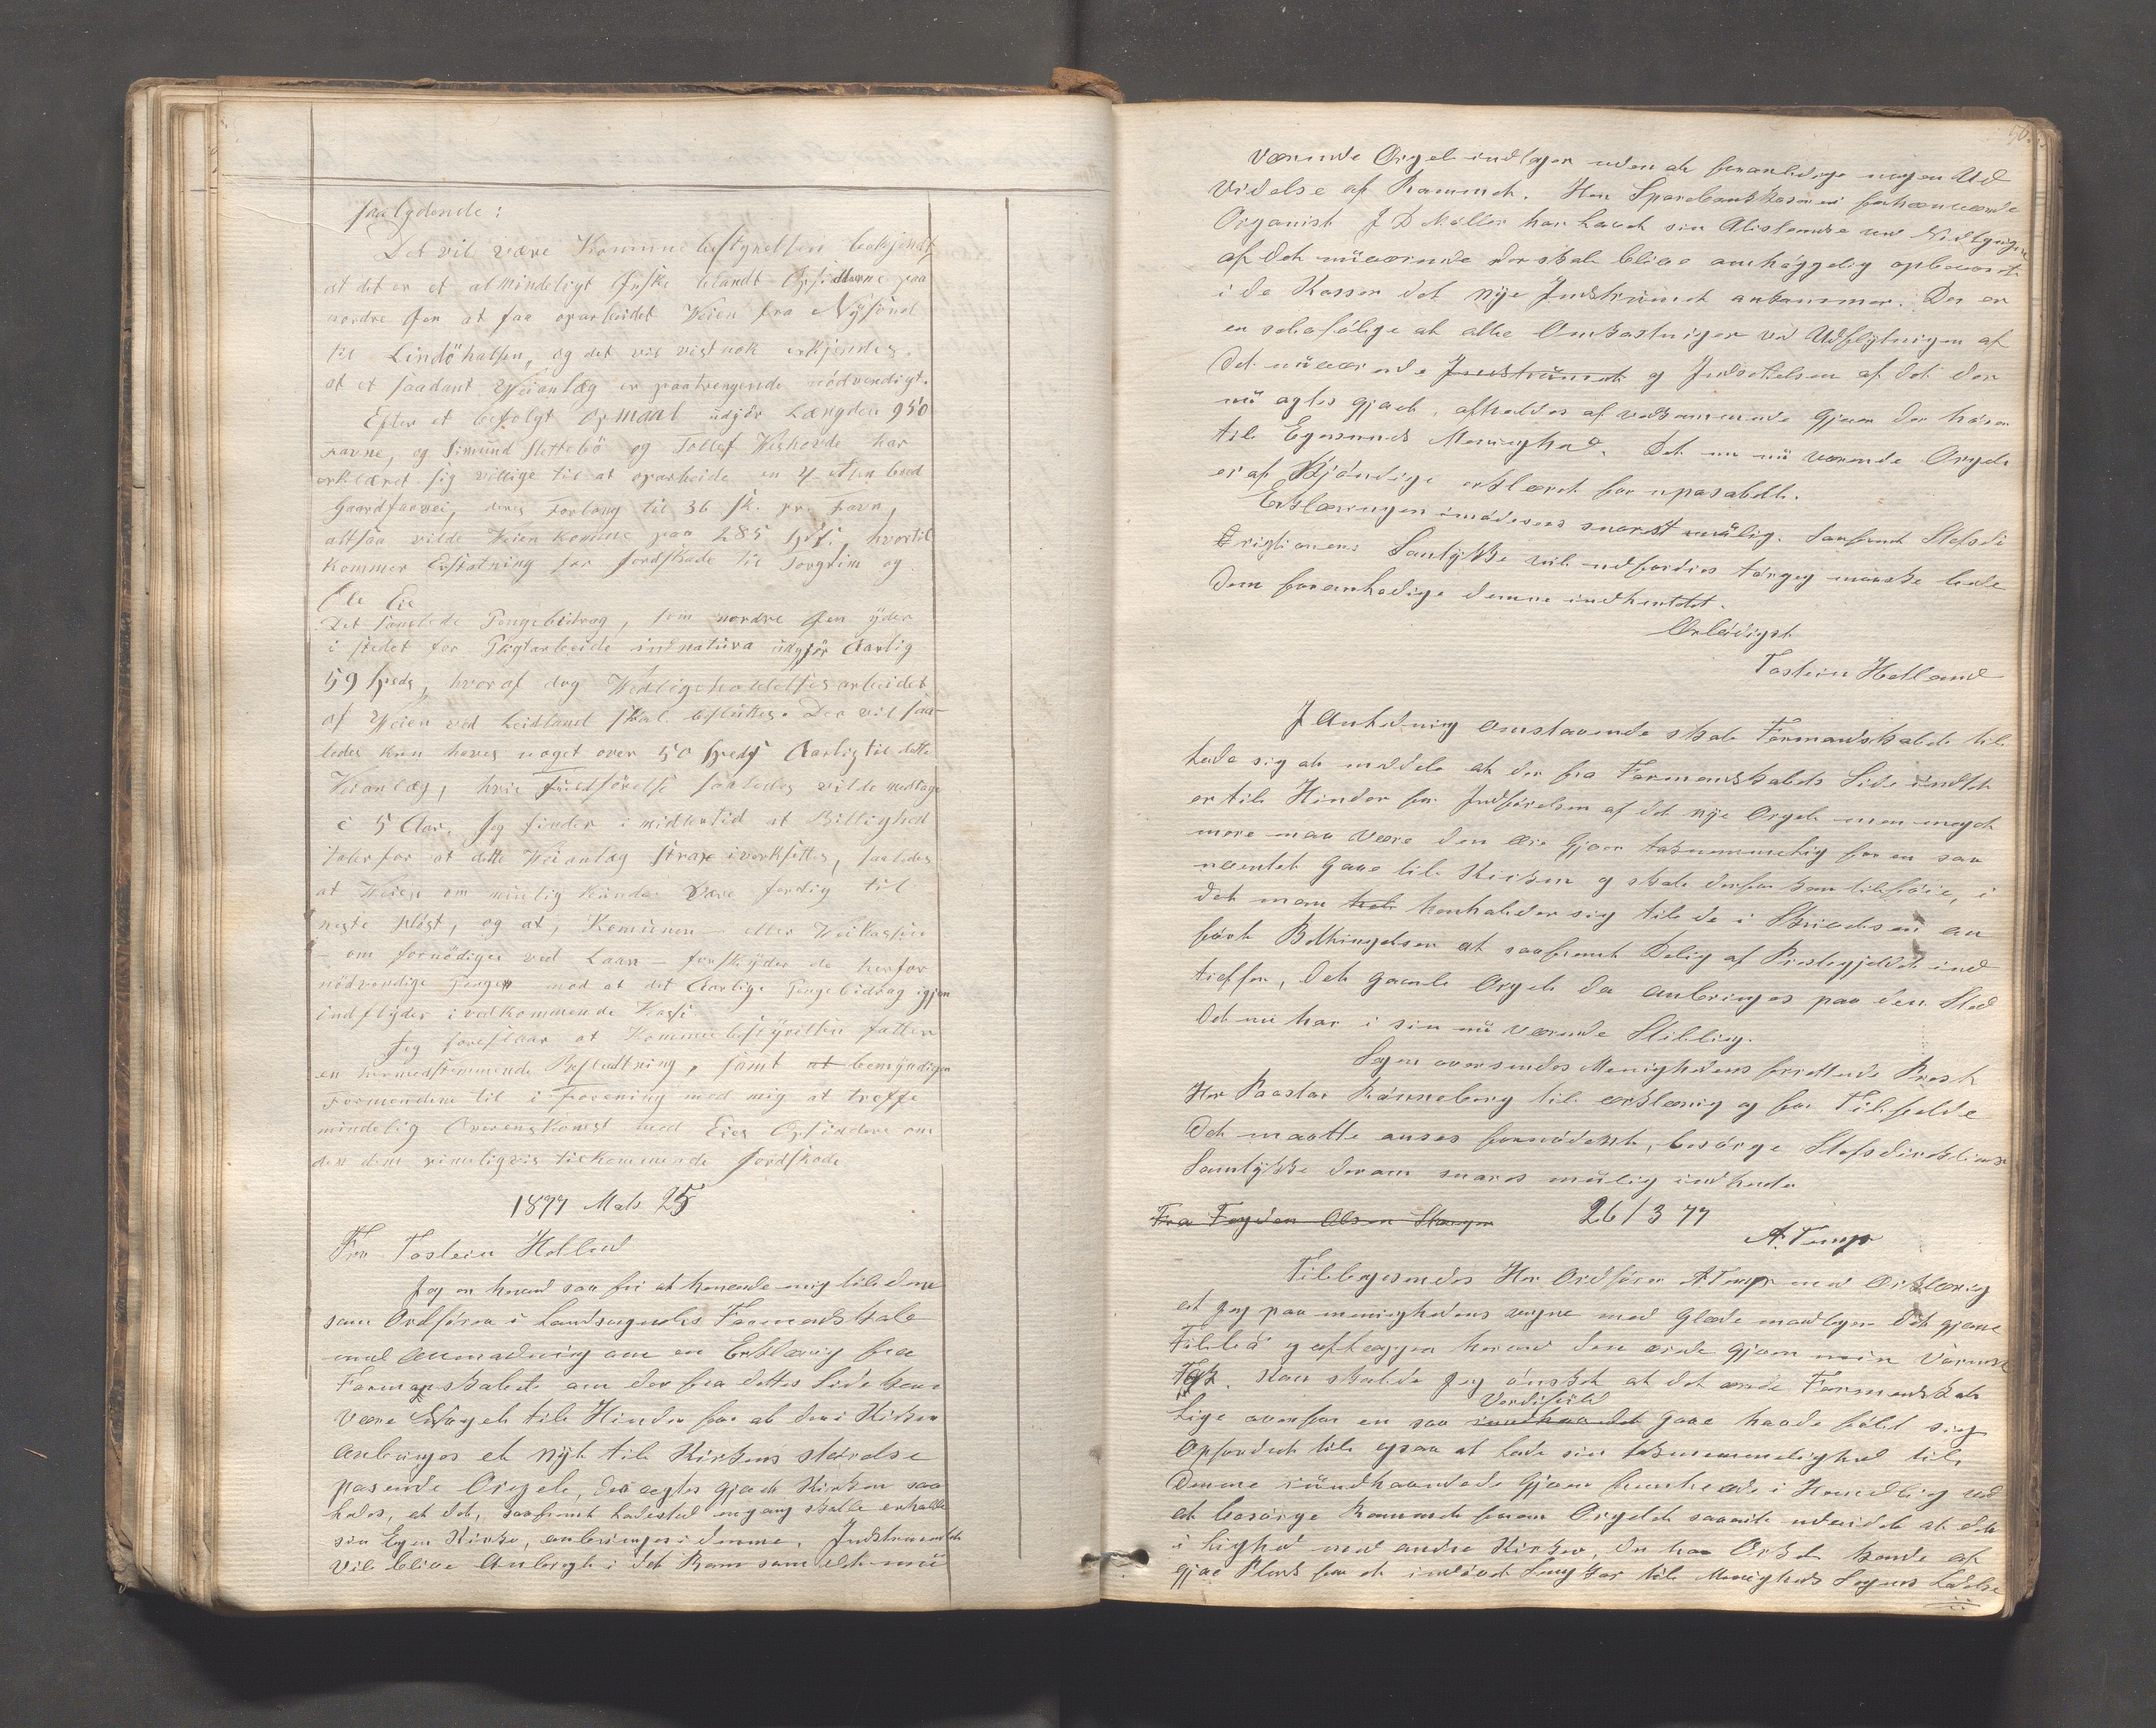 saalydende:
Det vil være Kommunebestyrelsen bekjendt,
at det er et almindeligt Ønske blandt Opsidderne paa
nordre Øen at faa oparbeidet Veien fra Nysund
til Lindöhalsen, og det vil vistnok erkjendes,
at et saadant Veianlæg er paatrengende nödvendigt.
Efter et befolgt Opmaal udgjör Længden 950
Favne, og Simund Slettebö og Tollef har
erklæret sig villige til at oparbeide en 4 Alen bred
Gaardfarvei, deres Forlang til 36 sk. pr. Favn,
altsaa vilde Veien komme paa 285 Spd., hvortil
kommer Erstatning for Jordskade til Torgrim og
Ole Eie
Det samlede Pengebidrag, som nordre Øen yder
i stedet for Pligtarbeide in natura udgjör Aarlig
59 Speds, hvoraf dog Vedligeholdelsesarbeidet
af Veien ved Leidland skal besluttes. Der vil saa-
ledes kun haves noget over 50 Speds Aarlig til dette
Veianlæg, hvis Fuldförelse saaledes vilde medtage
c 5 Aar. Jeg finder imidlertid at Billighed
taler for at dette Veianlæg strax iverksettes, saaledes
at Veien om muelig kunde være ferdig til
neste Höst, og at, Komunen — eller Veikassen
— om fornödiges ved Laan — forskyder de herfor
nödvendige Penger mod at det Aarlige Pengebidrag igjen
indflyder i vedkommende Kasse
Jeg foreslaar at Kommunebestyrelsen fatter
en hermedstemmende Beslutning, samt at bemyndiger
Formendene til i Forening med mig at treffe
mindelig Overenskomst med Eies Opsiddere om
den dem rimeligvis tilkommende Jordskade
1877 Mats 25
Fra Tostein Helland
Jeg er herved saa fri at henvende mig til dem
som Ordförer i Landsognets Formandskab
med Anmodning om en Erklæring fra
Formanskabet om der fra dettes Side kan
være Noget til Hinder for at der i Kirken
Anbringes et nyt til Kirkens störelse
pasende Orgel, der agtes gjædt Kirken saa
ledes, at det, saafremt Ladested engang skulle erholde
sin Egen Kirke, anbringes i denne. Instrumentet
vil blive Anbragt i det Rum som det nu
værende Orgel indtager uden at foranledige nogen Ud
videlse af Rummet. Herr Sparebankkaserer forhenværende
Organist J D Möller har lovet sin Assistence ved Nedtagingen
af det nuværende der skal blive omhyggelig opbevaret
i de Kasser det nye Instrument ankommer. Der er
en selvfölge at alle Omkostninger ved Udflytningen af
det nuværende Instrument og Indsettelsen af det der
nu agtes gjædt, afholdes af vedkommende Gjæver der hörer
til Egersunds Menighed. Det nu nu værende Orgel
er af Kjöndige erklæret for upasabelt.
Erklæringen imödesees snarest muelig. Saafremt Stefsdi
rigtionens Samtykke vil udfordres törgeg maaske bede
Dem foranledige denne indhentet.
Erbödigst
Tostein Helland
I Anledning omstaaende skal Formandskabet til
lade sig at meddele at der fra Formanskabets Side indtet
er til Hinder for Indförelsen af det nye Orgel men meget
mere maa være den ære Gjæver taknemmelig for en saa
næontet gave til Kirken og skal derfor kun tilföie, i
det man hol henholder sig til de i Skrivelsen an
förte Bethingelser at saafremt Deling af Prestegjeldet ind
treffer, det gamle Orgel da anbringes paa den Sted
det nu har i sin nu værende Stilling.
Sagen oversendes Menighedens forrettende Prest
Her Paastor Rönneberg til erklæring og for Tilfelde
det maatte anses fornödent, besörge Stefsdirektionens
Samtykke derom snares muelig indhende
Fra Fogden Olsen Stavanger 26/3 77
A. Tengs
Tilbagesendes Her Ordförer A Tengs med Erklæring
at jeg paa menighedens vegne med Glæde modtager det gjæve
tilbud og aflægger herved den ærede gjæver min Varmeste
Tak. Kun skulde Jeg önsket at det ærede Formandskab
Verdifuld
Lige ovenfor en saa rundhaandet Gave havde fölt sig
Opfordret til ogsaa at lade sin taknemmelighed til
denne rundhaandede Gjæver fremtræde i Handling ved
at besörge Rummet foran Orgelet saavit udvidet at det
i Lighed med andre Kirker, der har Orgel kunde af
gjæ Plads for et indövet Sang kor til Menigheds Sangens Ledelse